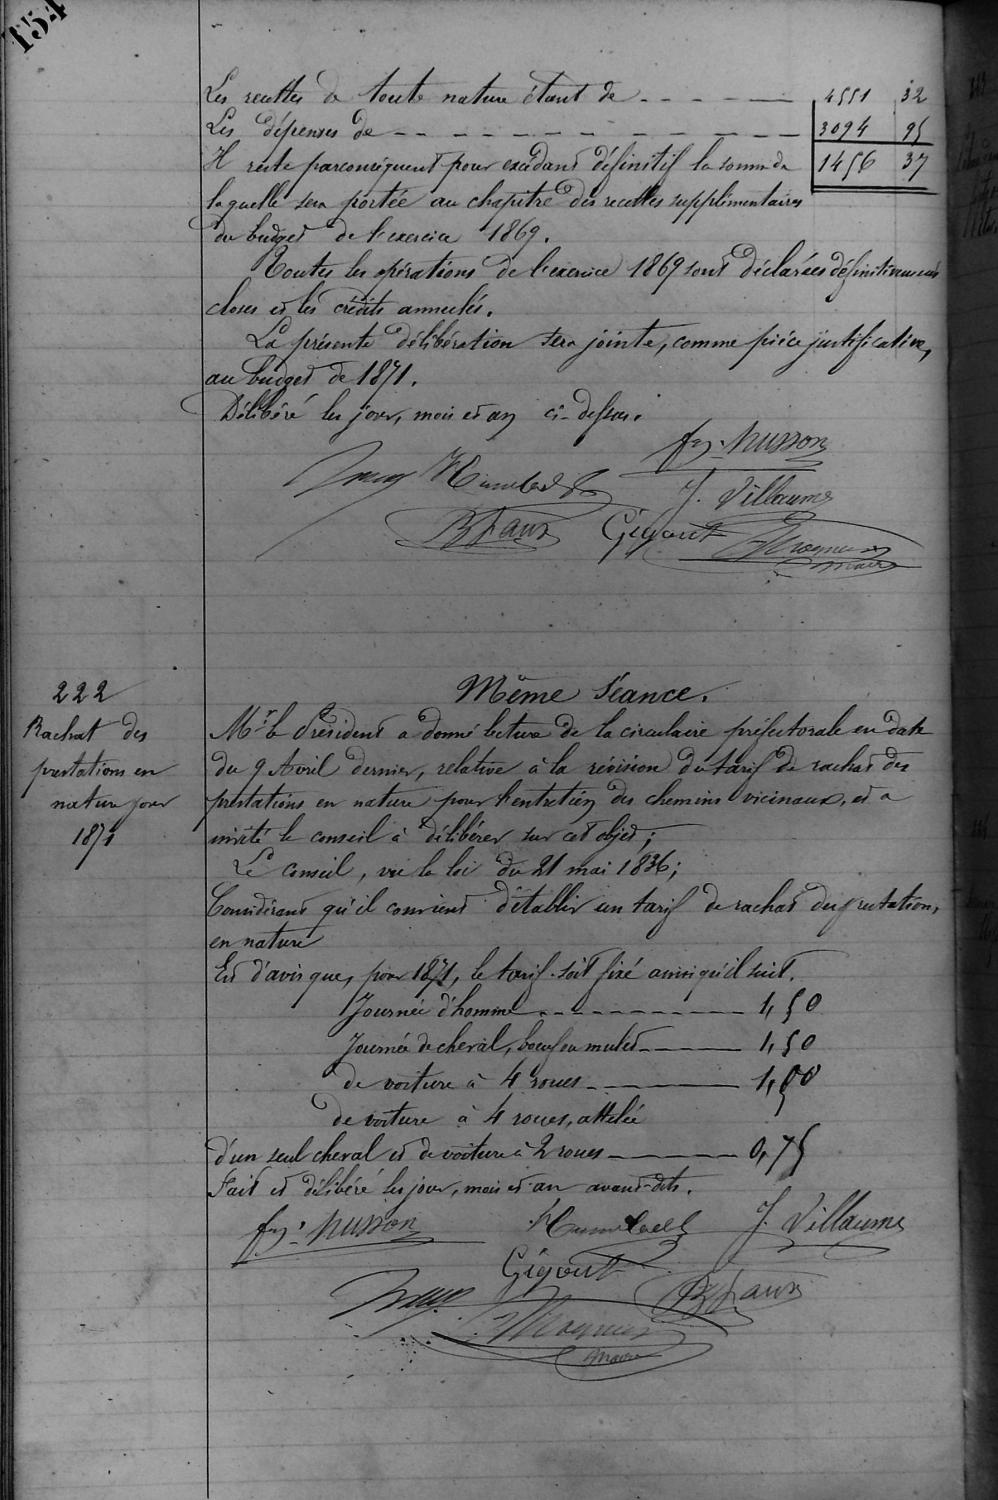 154
Les recettes de toute nature étant de - - - - 4551 32
Les dépenses de - - - - - - - - 3094 95
Il reste parconséquent pour excédant définitif la somme de 1456 37
laquelle sera portée au chapitre des recettes supplémentaires
du budget de l'exercice 1869.
Toutes les opérations de l'exercice 1869 sont déclarées définitivement
closes et les crédits annulés.
La présente délibération sera jointe, comme pièce justificative,
au budget de 1871.
Délibéré les jour, mois et an ci-dessus.
fs. husson
Humbert
J. Villaume
Gigout
maire
222
Rachat des
prestations en
nature pour
1871
Même Séance.
Mr. le Président a donné lecture de la circulaire préfectorale en date
du 9 Avril dernier, relative à la révision du tarif de rachat des
prestations en nature pour l'entretien des chemins vicinaux, et a
invité le conseil à délibérer sur cet objet;
Le conseil, vu la loi du 21 mai 1836;
Considérant qu'il convient d'établir un tarif de rachat des prestations
en nature
Est d'avis que, pour 1871, le tarif soit fixé ainsi qu'il suit.
Journée d'homme - - - - - - - 1,50
Journée de cheval, boeuf ou mulet - - - 1,50
de voiture à 4 roues - - - 1,50
de voiture à 4 roues, attelée
d'un seul cheval et de voiture à 2 roues - - - 0,75
Fait et délibéré les jour, mois et an avant-dits.
fs. husson
Humbert
J. Villaume
Gigout
maire